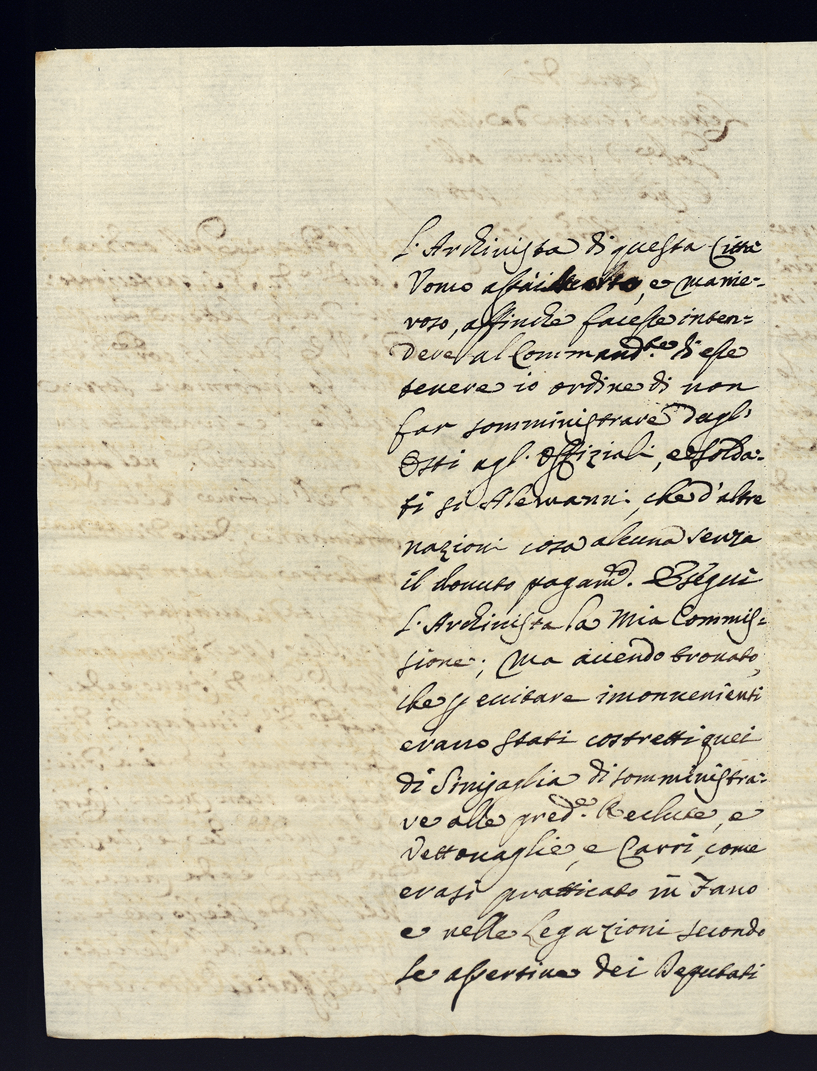 L'Archivista di questa Città
Uomo assai, e manie=
roso, affinche facesse inten=
dere al Command.te di esse
tenere io ordine di non
far somministrare dagl'
Osti agl' Offiziali, e solda=
ti si Alemanni, che d'altre
nazioni cosa alcuna senza
il dovuto pagam.o. Eseguì
L'Archivista la Mia Commis=
sione; Ma avendo trovato,
che p evitare inconvenienti
erano stati costretti quei
di Sinigaglia di somministra=
re alle pred.e Reclute, e
Vettovaglie, e Carri, come
erasi pratticato in Fano
e nelle Legazioni secondo
le assertive dei Deputati